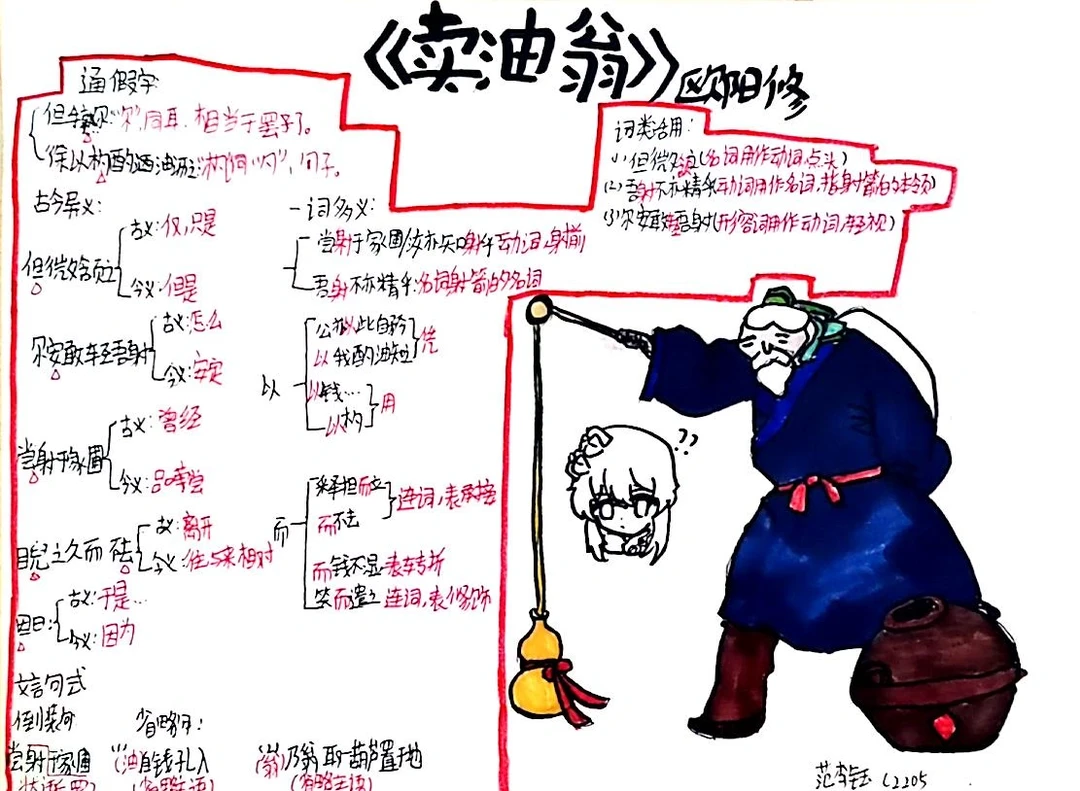 《卖油翁》欧阳修
通假字
但手熟"尔"，同耳，相当于罢了。
徐以杓酌油沥之："杓"同"勺"，勺子。
古今异义：
但微颔之
古义：仅，只是
今义：但是
尔安敢轻吾射
古义：怎么
今义：安定
尝射于家圃
古义：曾经
今义：品尝
睨之久而不去
古义：离开
今义：往，与来相对
因曰：
古义：于是…
今义：因为
文言句式
倒装句
省略句：
尝射于家圃
(油)自钱孔入
(翁)乃翁取一葫芦置于地
(省略主语)
(省略主语)
一词多义：
尝射于家圃/汝亦知射乎 动词，射箭
吾射不亦精乎：名词 射箭的 名词
以
公亦以此自矜
以我酌油知
凭
以钱…
以杓
用
而
释担而立
而不去
连词，表承接
而钱不湿 表转折
笑而遣之 连词，表修饰
词类活用：
(1)但微颔之(名词用作动词，点头)
(2)吾射不亦精乎(动词用作名词，指射箭的本领)
(3)尔安敢轻吾射(形容词用作动词，轻视)
??
L2205